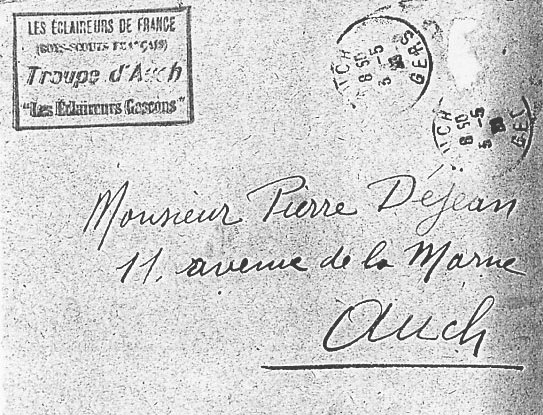 LES ÉCLAIREURS DE FRANCE
(BOYS-SCOUTS FRANÇAIS)
Troupe d'Auch
"Les Éclaireurs Gascons"
GERS
8 50
5
Monsieur Pierre Déjean
11, avenue de la Marne
Auch